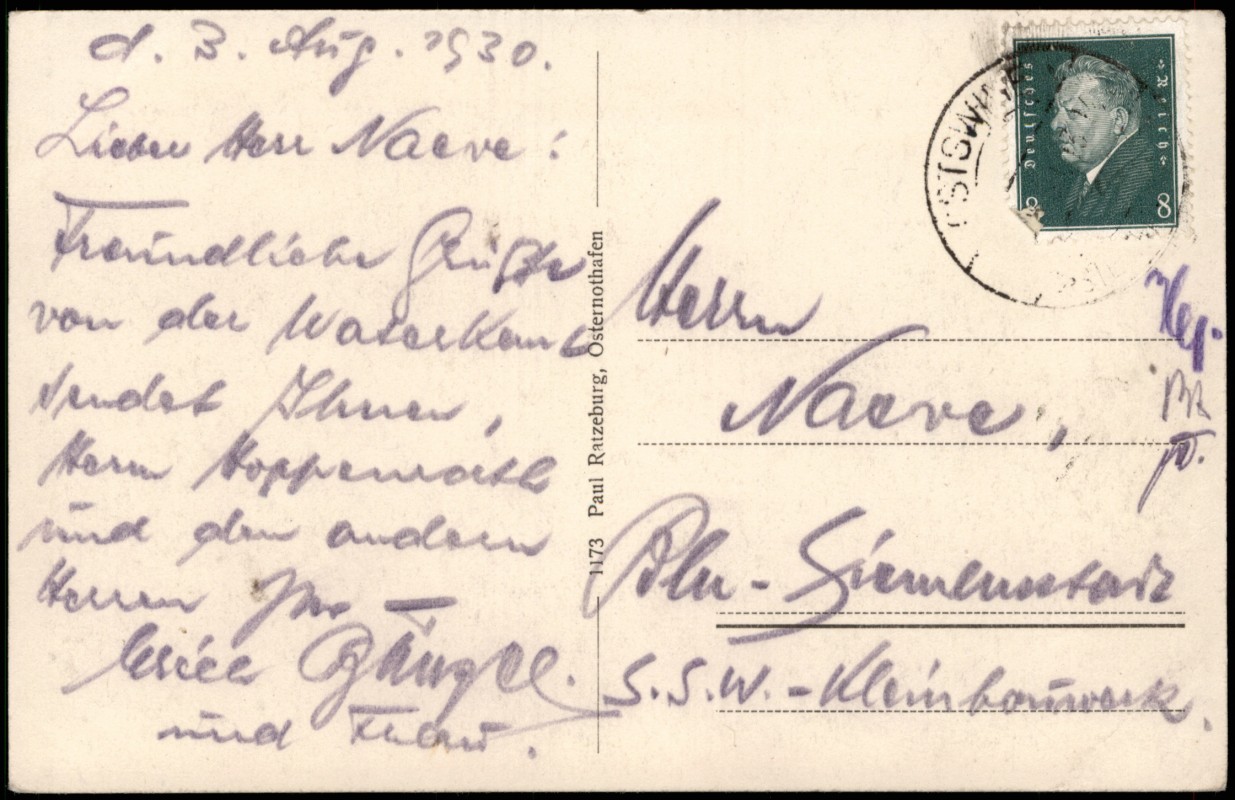 d. 3. Aug. 1930.
Lieber Herr Naeve!
Freundliche Grüße
von der Waterkant
sendet Ihnen,
Herrn Hoppenrath
und den andern
Herren Ihr
und Frau.
1173 Paul Ratzeburg, Osternothafen
Deutsches Reich
8 8
OSTSWINE
Herrn
Naeve,
Bln - Siemensstadt
S.S.W. - Kleinbauwerk.